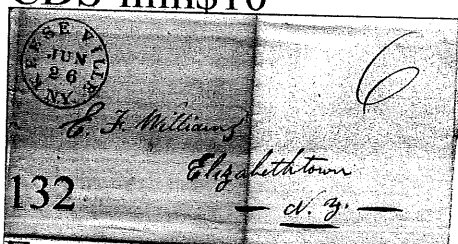 CDS min$10
KEESEVILLE
JUN
26
N.Y.
6
E. F. Williams
Elizabethtown
N. Y.
132